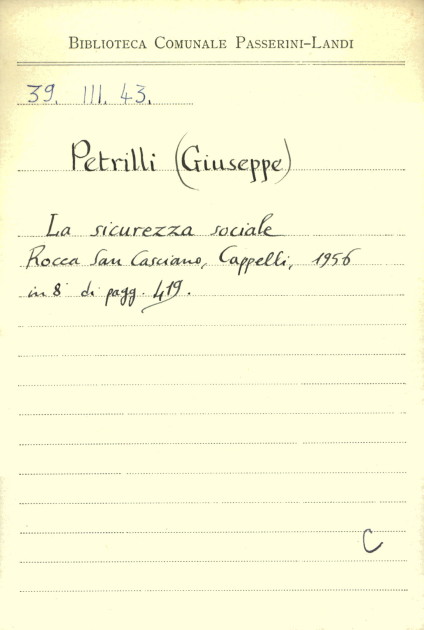 BIBLIOTECA COMUNALE PASSERINI-LANDI
39. III. 43.
Petrilli (Giuseppe)
La sicurezza sociale
Rocca San Casciano, Cappelli, 1956
in 8° di pagg. 419.
C